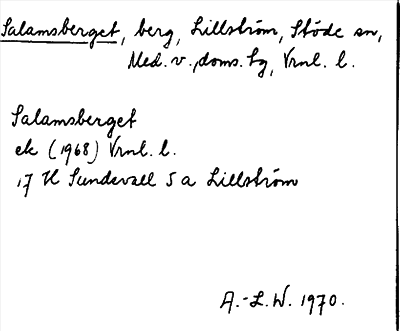 Salamsberget, berg, Lillström, Stöde sn,
Med. v., doms. sg, Vrnl. l.
Salamsberget
ek (1968) Vrnl. l.
17 H Sundsvall 5 a Lillström
A.-L.W. 1970.